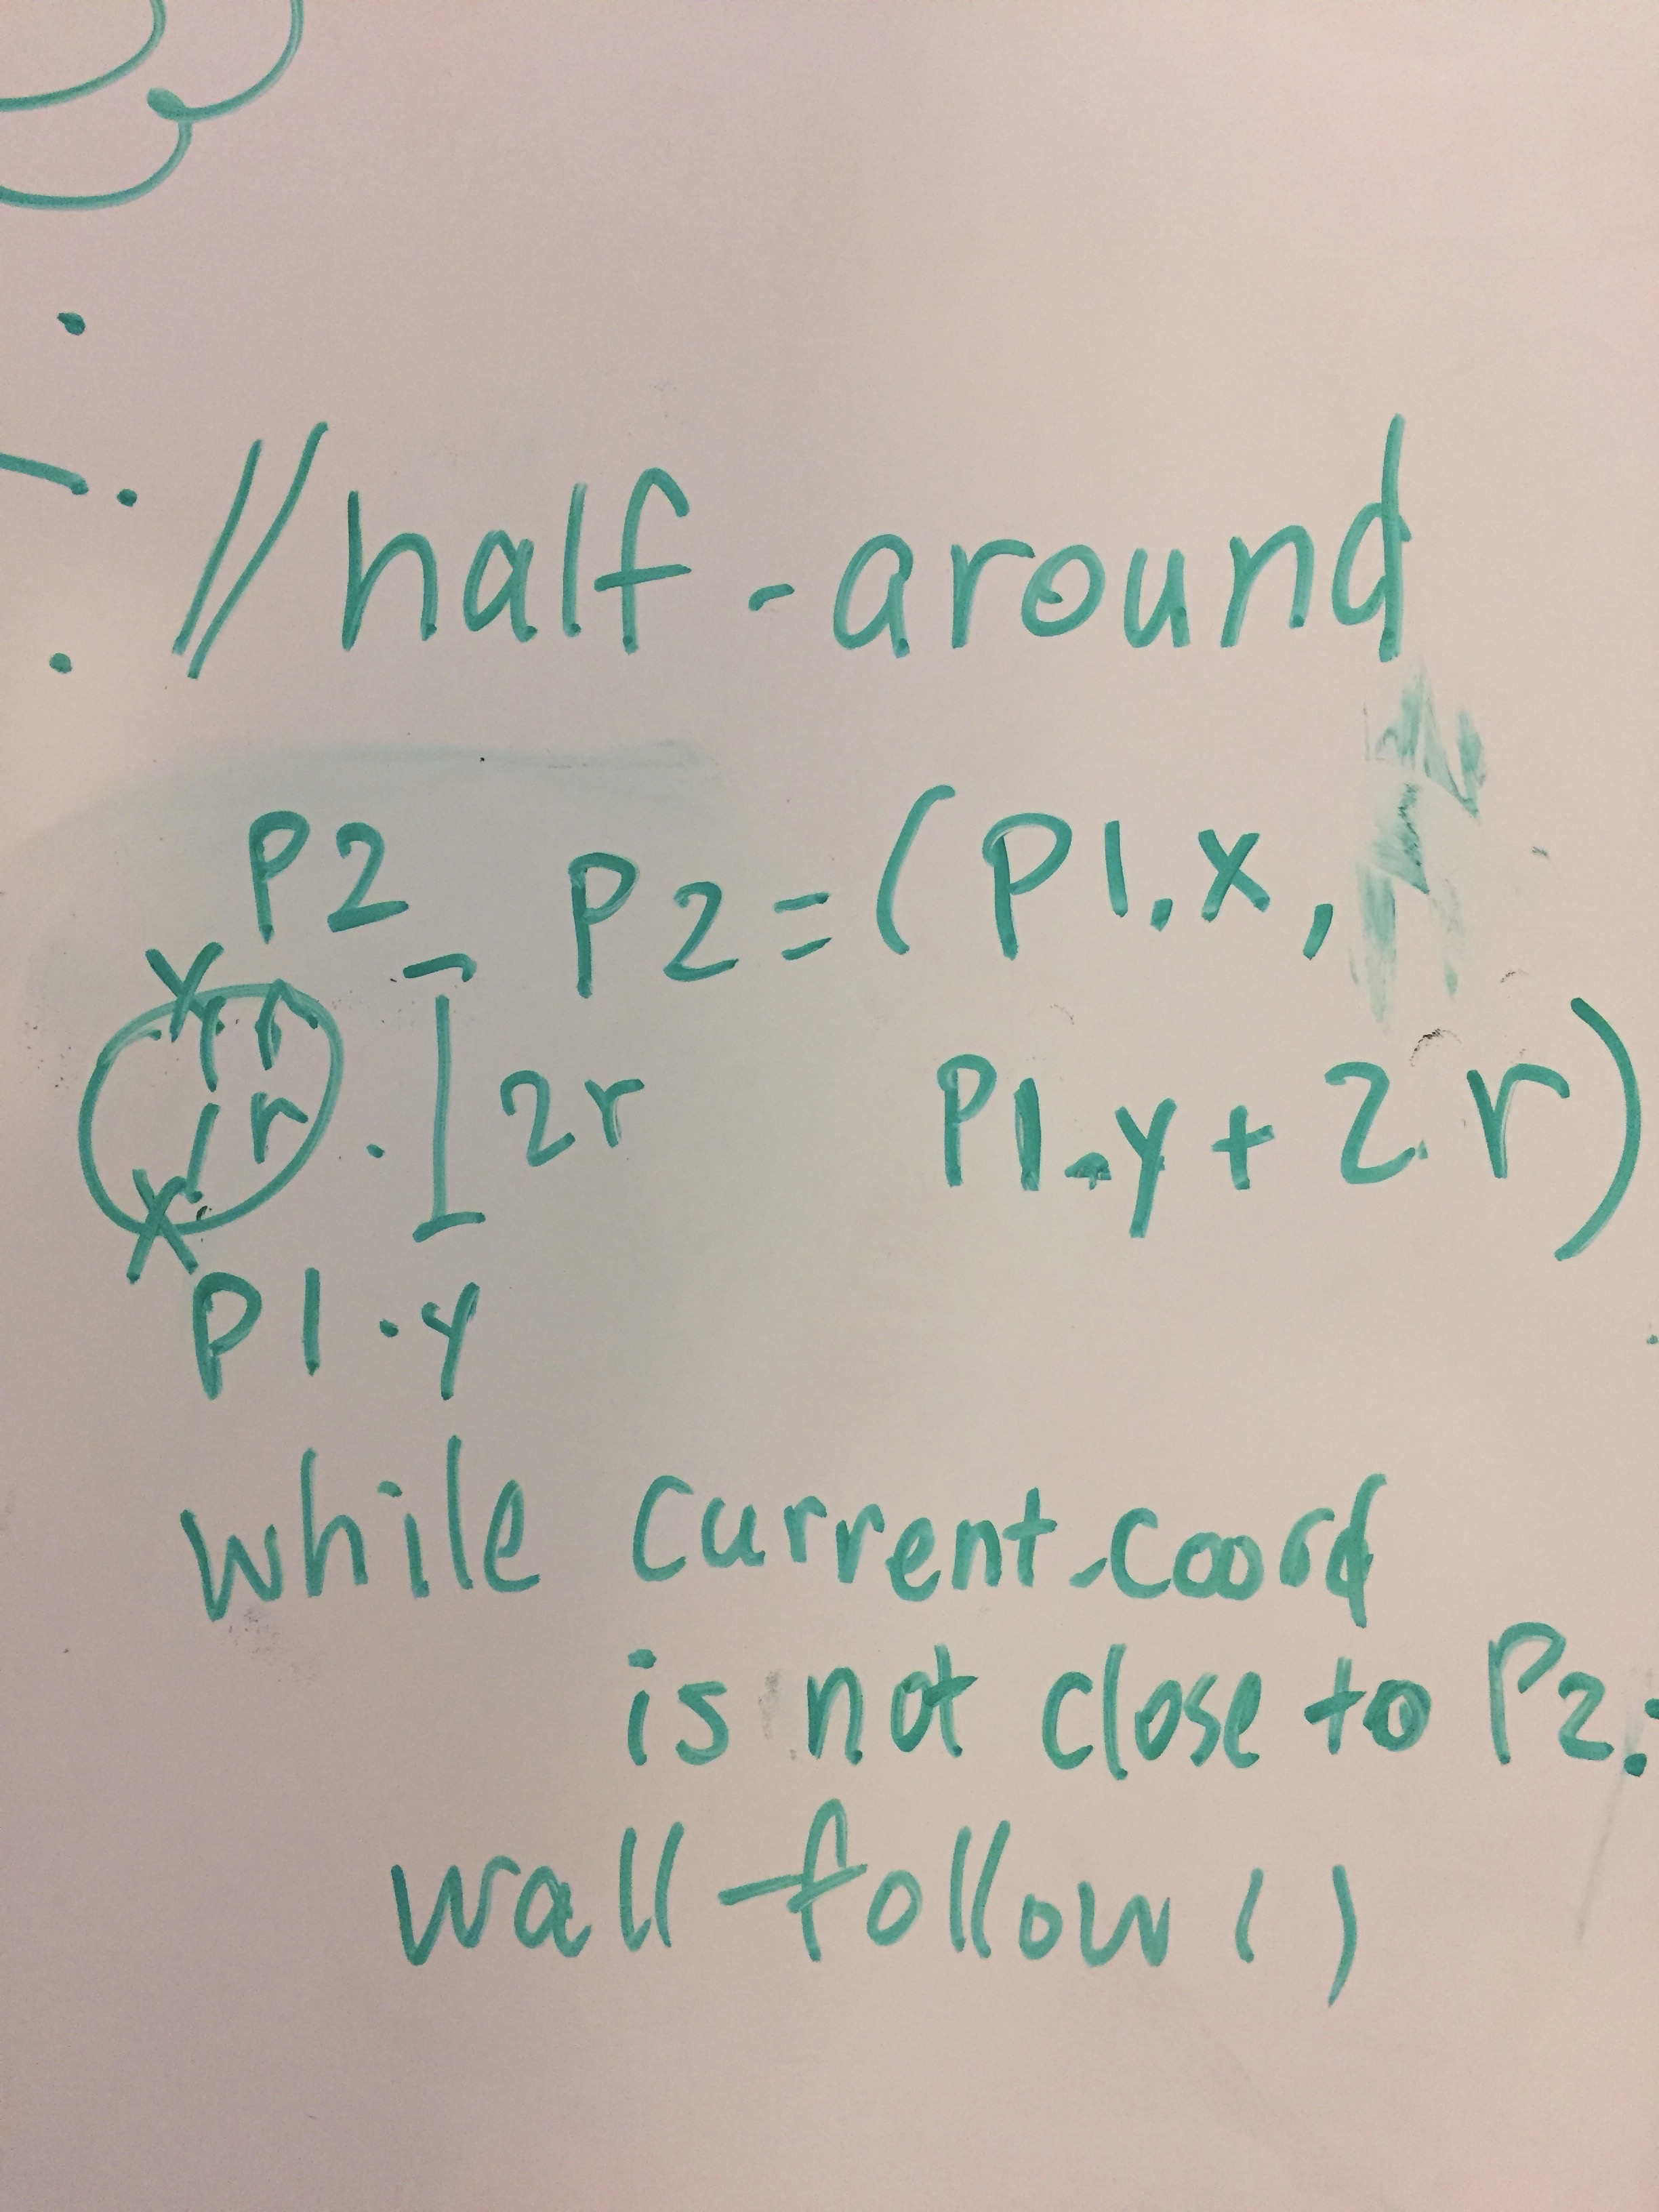 //half-around
P2
P2=(P1.x,
P1.y+2r)
r
2r
P1.y
while current-coord
is not close to P2:
wall-follow()